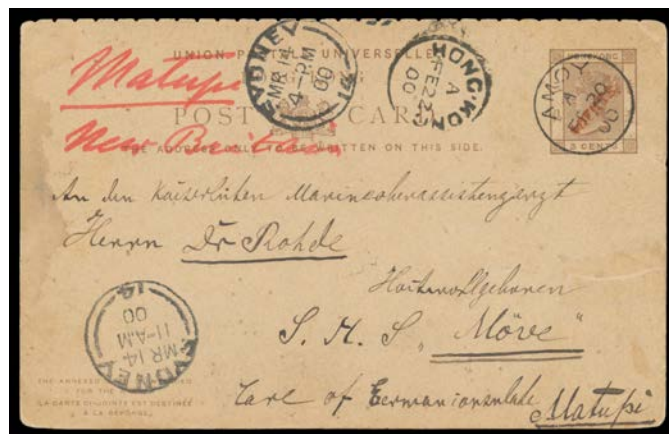 UNION POSTALE UNIVERSELLE
HONG KONG
POST CARD
THE ADDRESS ONLY TO BE WRITTEN ON THIS SIDE.
Matupi
New Britain
SYDNEY
MR 14
4-PM
00
14
HONG-KONG
A
FE 23
00
AMOY
A
FE 20
00
3 CENTS
An den Kaiserlichen Marineoberassistenzarzt
Herrn Dr Rohde
Hochwohlgeboren
S. M. S "Möve"
Care of Germanconsulate Matupi
SYDNEY
MR 14
11-AM
00
14
THE ANNEXED
FOR THE
LA CARTE CI-JOINTE EST DESTINÉE
À LA RÉPONSE.